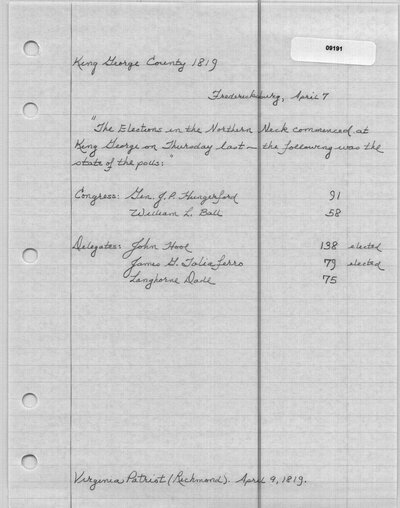 09191
King George County 1819
Fredericksburg, April 7
"The Elections in the Northern Neck commenced at
King George on Thursday last — the following was the
state of the polls:"
Congress: Gen. J. P. Hungerford 91
William L. Ball 58
Delegates: John Hood 138 elected
James G. Taliaferro 79 elected
Langhorne Dade 75
Virginia Patriot (Richmond). April 9, 1819.